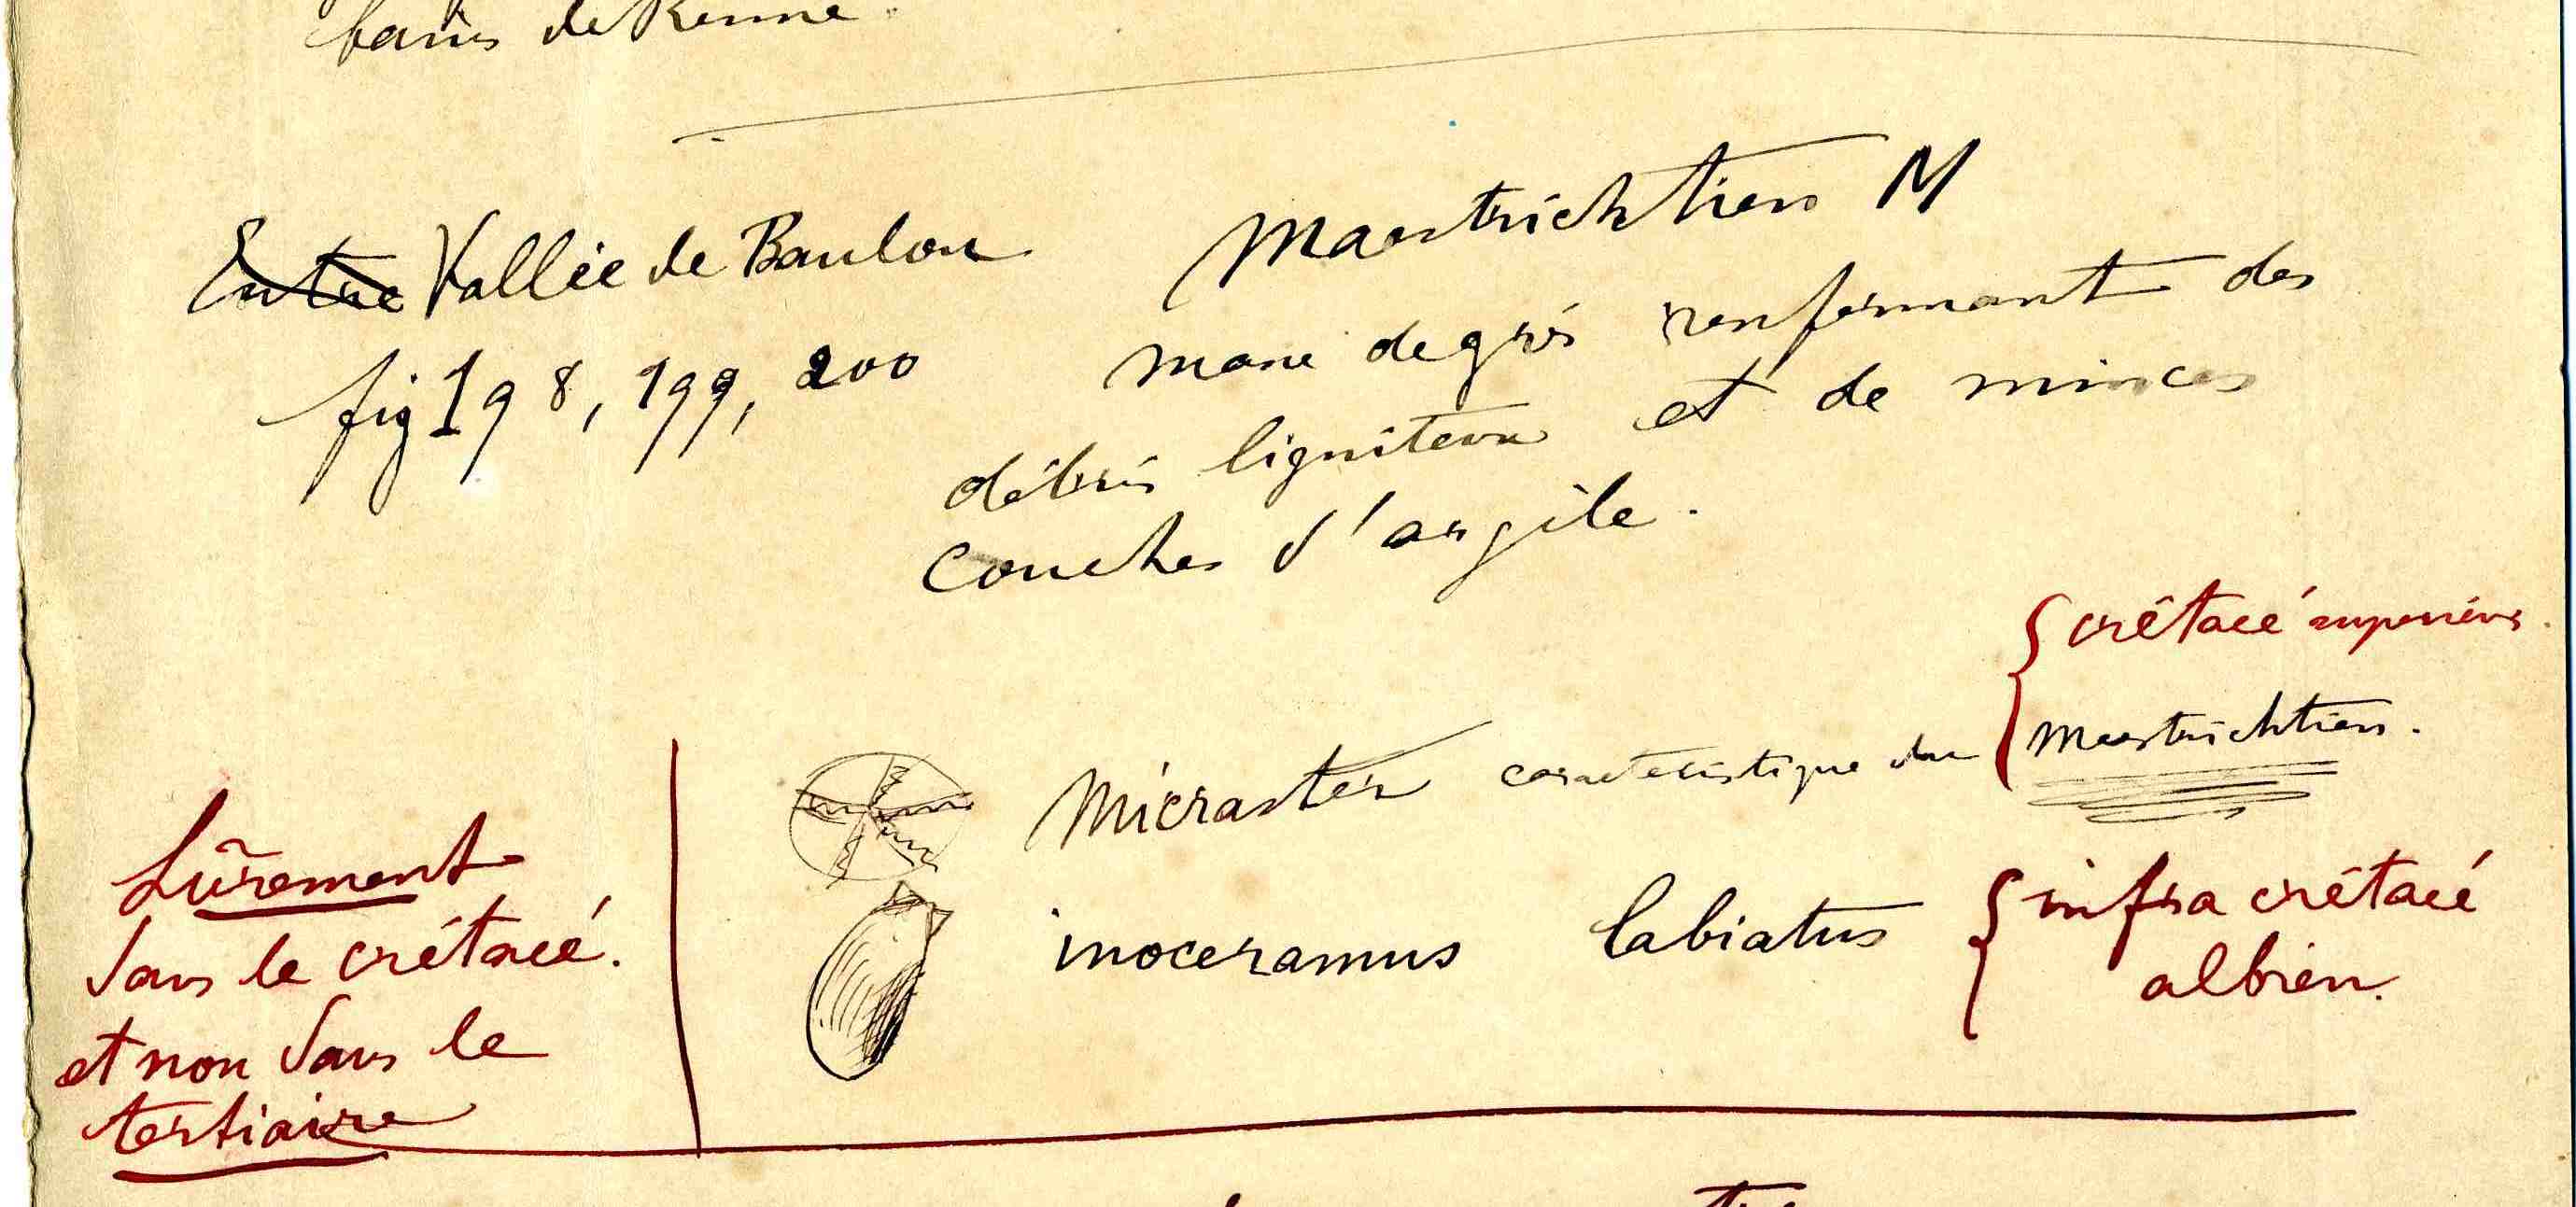 bains de Renne
Maestrichtien M
~~Entre~~ Vallée de Baulou
fig 198, 199, 200
masse de grès renfermant des
débris ligniteux et de minces
couches d'argile.
{ crêtacé supérieur.
Micraster caracteristique du Maestrichtien.
Sûrement
dans le crétacé.
et non dans le
tertiaire
inoceramus labiatus { infra crétacé
albien.